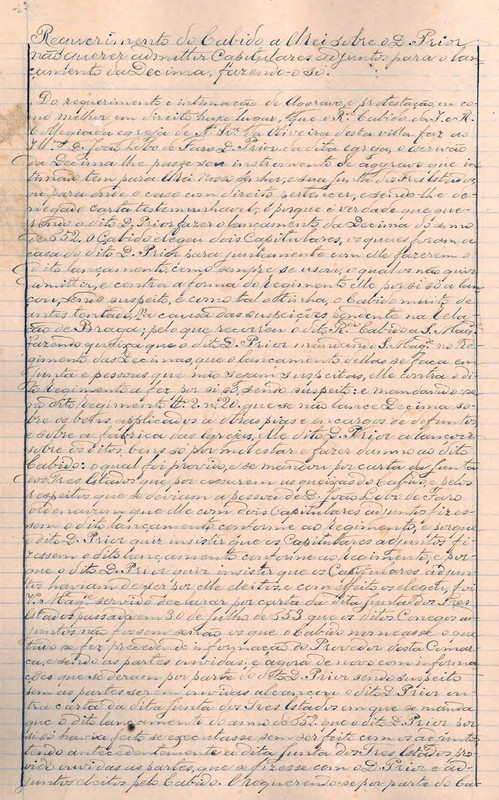 Requerimento do Cabido a ElRei sobre o D. Prior
não querer admittir Capitulares adjuntos para o lan-
çamento da Decima, fazendo-o só.
Do requerimento e intimação de Aggravo, e protestação, ou co-
mo melhor em direito haja lugar, que o Rdo. Cabido da I. e R.
Collegiada egreja de N. Snra. da Oliveira desta villa faz ao
Illmo. D. João Lobo de Faro D. Prior da dita egreja, o escrivão
da Decima lhe passe seu instrumento de aggravo que in-
timado tem para ElRei Nosso Senhor, e sua Junta dos Tres Estados,
ou para onde o caso com direito pertencer, e sendo-lhe de-
negado carta testemunhavel; é porque é verdade que que-
rendo o dito D. Prior fazer o lançamento da Decima do anno
de 652. O Cabido elegeu dois Capitulares, os quaes foram a
casa do dito D. Prior para juntamente com elle fazerem o
dito lançamento, como sempre se usou; e qual os não quiz
admittir, e contra a forma do regimento elle por si só a lan-
çou, sendo suspeito, e como tal o tinha, o Cabido muito de
antes tentado, a causa das suspeições pendente na Rela-
ção de Braga; pelo que recorreu o dito Rdo. Cabido a S. Mage.
fazendo queixa que o dito D. Prior mandando S. Mage. no Re-
gimento das Decimas, que o lançamento dellas se faça em
Junta e pessoas que não sejam suspeitas, elle contra o di-
to Regimento a fez por si só, sendo suspeito: e mandando-se
no dito regimento tt.º 2. n.º 20, que se não lance Decima so-
bre os bens applicados a obras pias e encargos de defuntos
e sobre a fabrica das egrejas, elle dito D. Prior a lançou
sobre os ditos bens só por molestar e fazer damno ao dito
Cabido: o qual foi provido, e se mandou por carta da Junta
dos Tres Estados que por cessarem as queixas do Cabido, e pelos
respeitos que se deviam a pessoa de D. João Lobo de Faro
ordenavam que elle com dois Capitulares adjuntos fizes-
sem o dito lançamento conforme ao regimento, e porque
o dito D. Prior quiz insistir que os Capitulares adjuntos fi-
zessem o dito lançamento conforme ao regimento; e por-
que o dito D. Prior quiz insistir que os Capitulares adjun-
tos haviam de ser por elle eleitos, e com effeito os elegeu, foi
S. Mage. servido declarar por carta da dita Junta dos Tres
Estados passada em 30 de julho de 653 que os ditos Conegos ad-
juntos não fossem senão os que o Cabido nomeasse, o que
tudo se fez precedendo informação do Provedor desta Comar-
ca, e sendo as partes ouvidas: e agora de novo com informa-
ções que se deram por parte do dito D. Prior sendo suspeito
sem as partes serem ouvidas alcançou o dito D. Prior ou-
tra carta da dita Junta dos Tres Estados em que se manda
que o dito lançamento do anno de 652 que o dito D. Prior por
si só havia feito se executasse sem ser feito com os adjuntos
tendo antecedentemente a dita Junta dos Tres Estados pro-
vido ouvidas as partes, que se fizesse com o D. Prior e ad-
juntos eleitos pelo Cabido. O requerendo-se por parte do Ca-